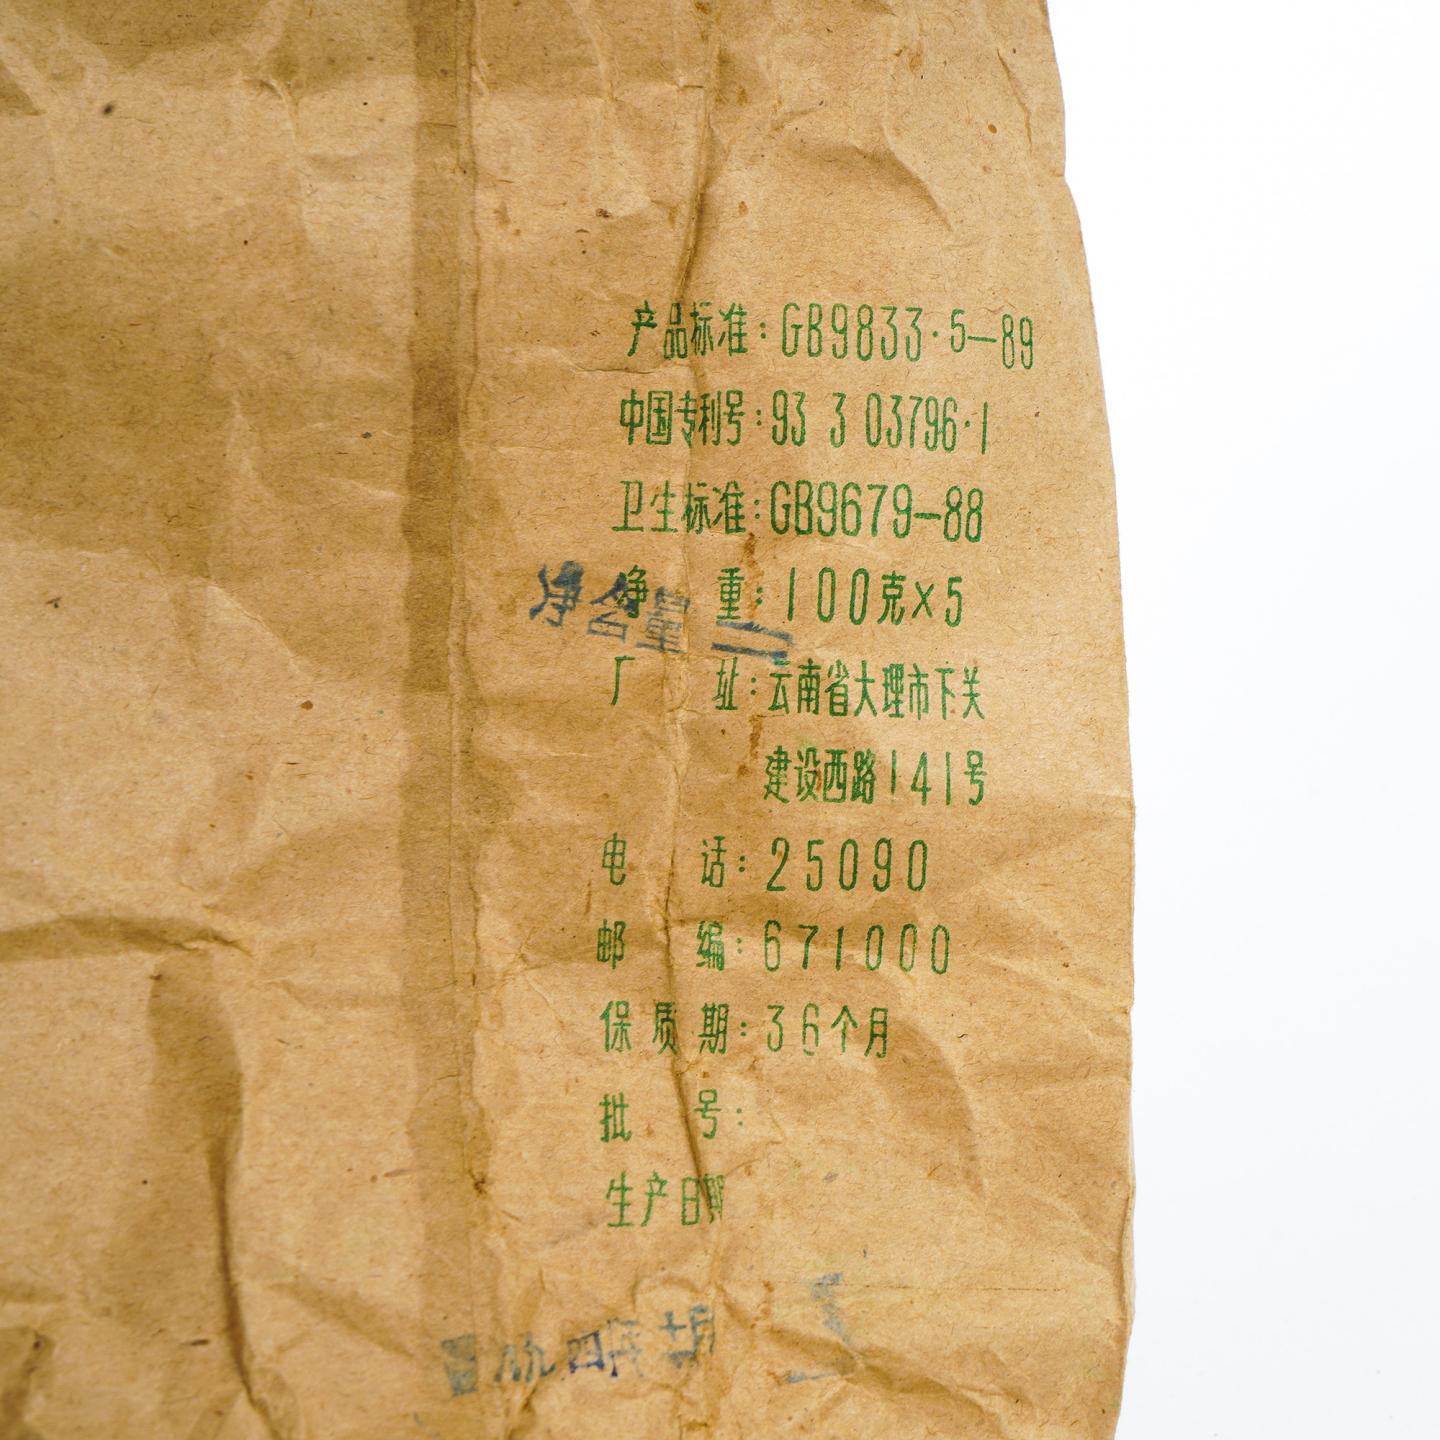 产品标准：GB9833·5—89
中国专利号：93 3 03796·1
卫生标准：GB9679—88
净　重：100克×5
净含量
厂　址：云南省大理市下关
建设西路141号
电　话：25090
邮　编：671000
保质期：36个月
批　号：
生产日期
九四年